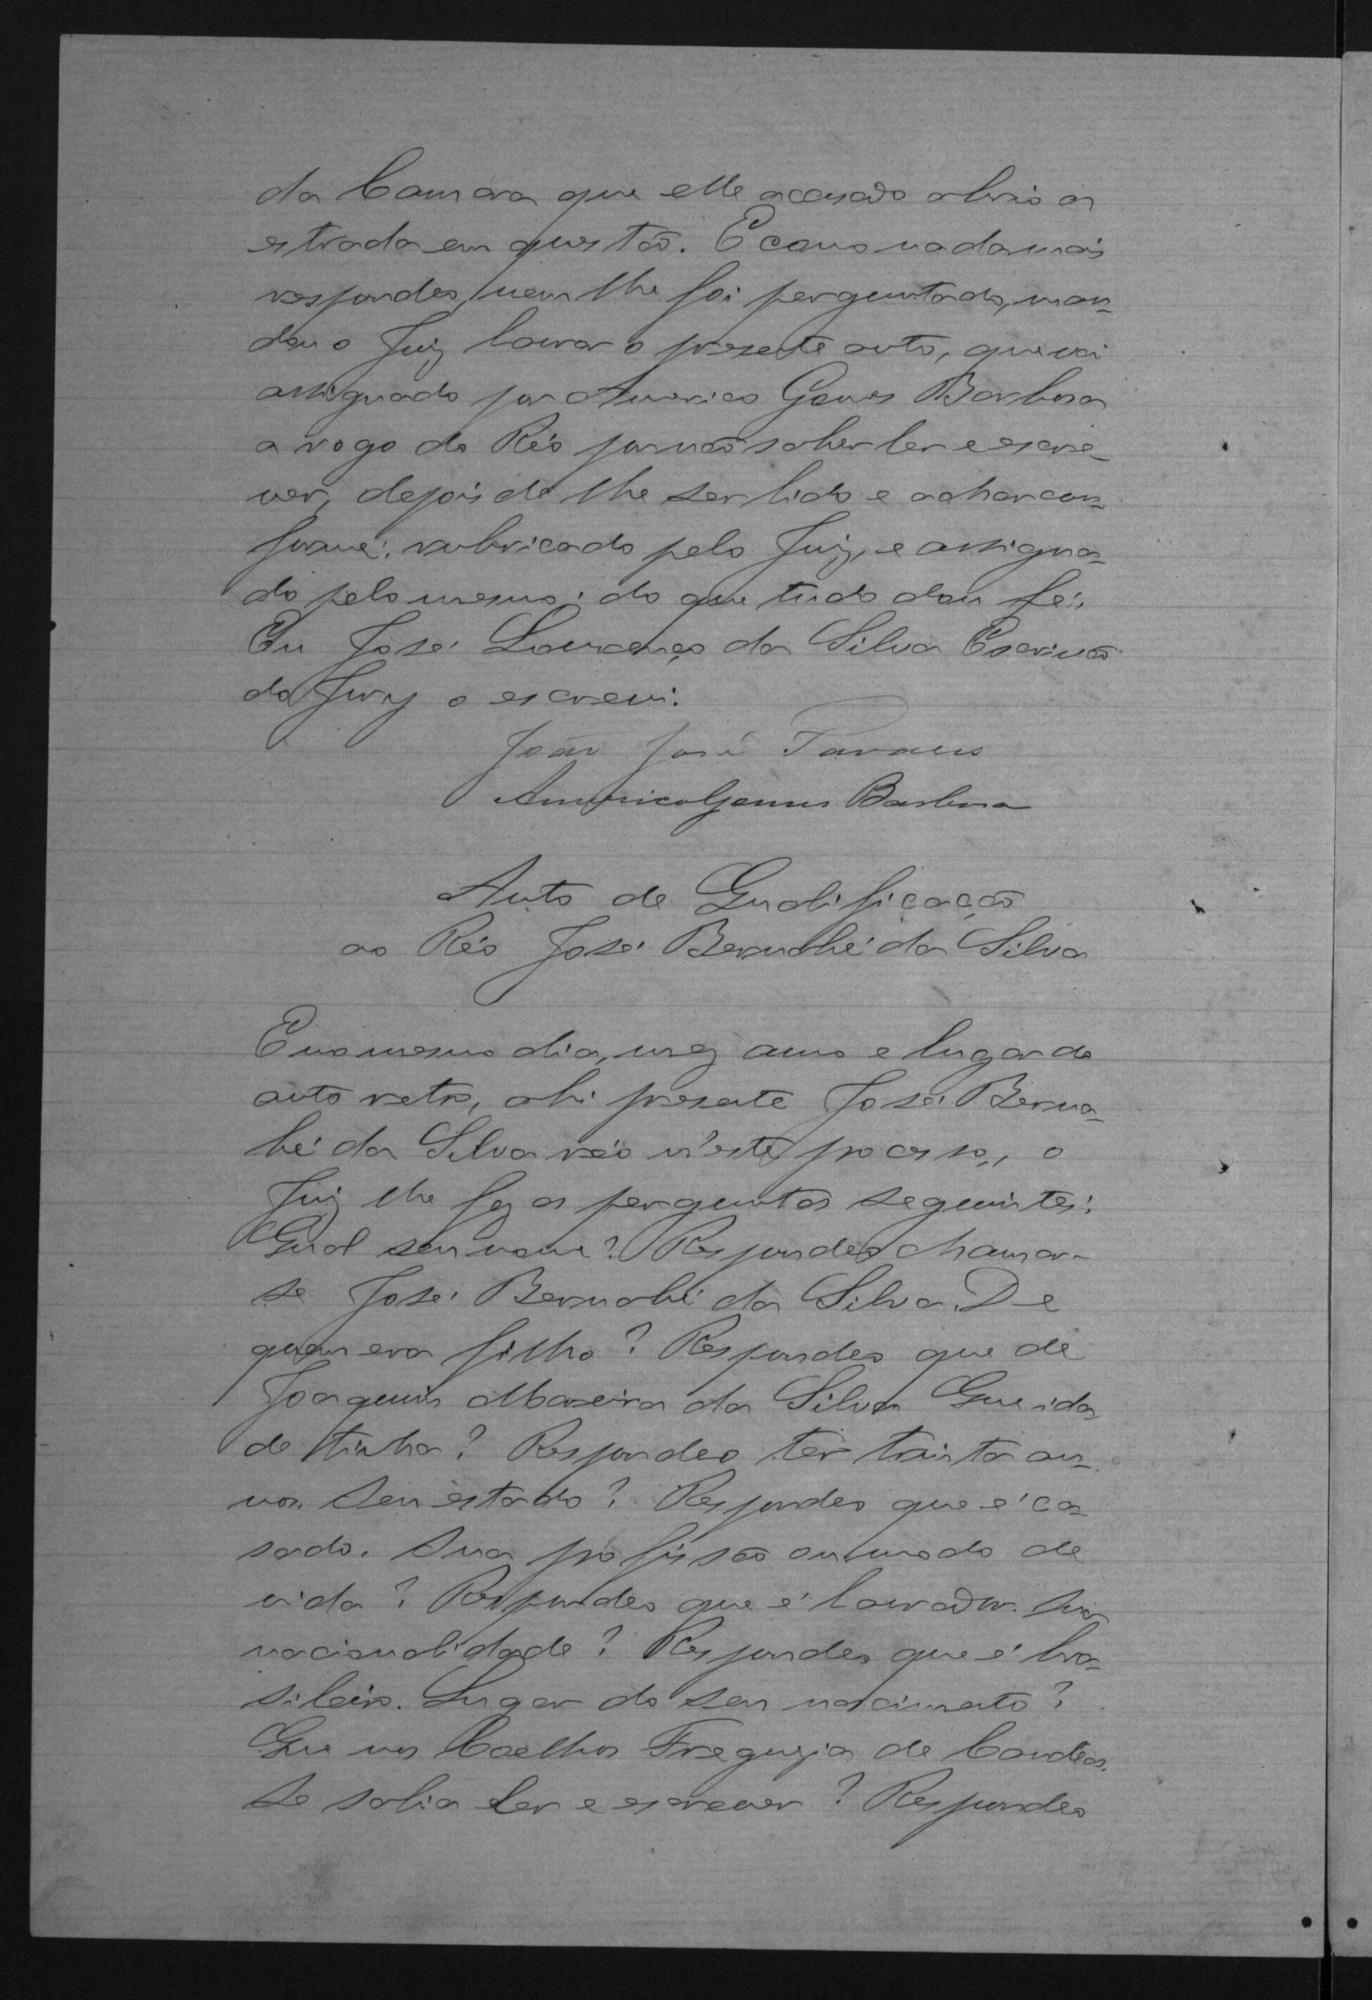 da Camara que elle accusado abrio a
estrada em questão. E como nada mais
respondeo, nem lhe foi perguntado, man-
dou o Juiz lavrar o presente auto, que vai
assignado por Americo Gomes Barbosa
a rogo do Réo por não saber ler e escre-
ver, depois de lhe ser lido e achar con-
forme; rubricado pelo Juiz, e assigna-
do pelo mesmo; do que tudo dou fé.
Eu José Lourenço da Silva Escrivão
do Jury o escrevi.
João José
Americo Gomes Barbosa
Auto de Qualificação
ao Réo José Bernabé da Silva
E no mesmo dia, mez anno e lugar do
auto retro, ahi presente José Berna-
bé da Silva réo n'este processo, o
Juiz lhe fez as perguntas seguintes:
Qual seu nome? Respondeo chamar-
se José Bernabé da Silva. De
quem era filho? Respondeo que de
Joaquim Moreira da Silva Que ida
de tinha? Respondeo ter trinta an-
nos. Seu estado? Respondeo que é ca-
sado. Sua profissão ou modo de
vida? Respondeo que é lavrador. Sua
nacionalidade? Respondeo que é bra-
sileiro. Lugar do seu nascimento?
Que nos Coelhos Freguezia de
Se sabia ler e escrever? Respondeo